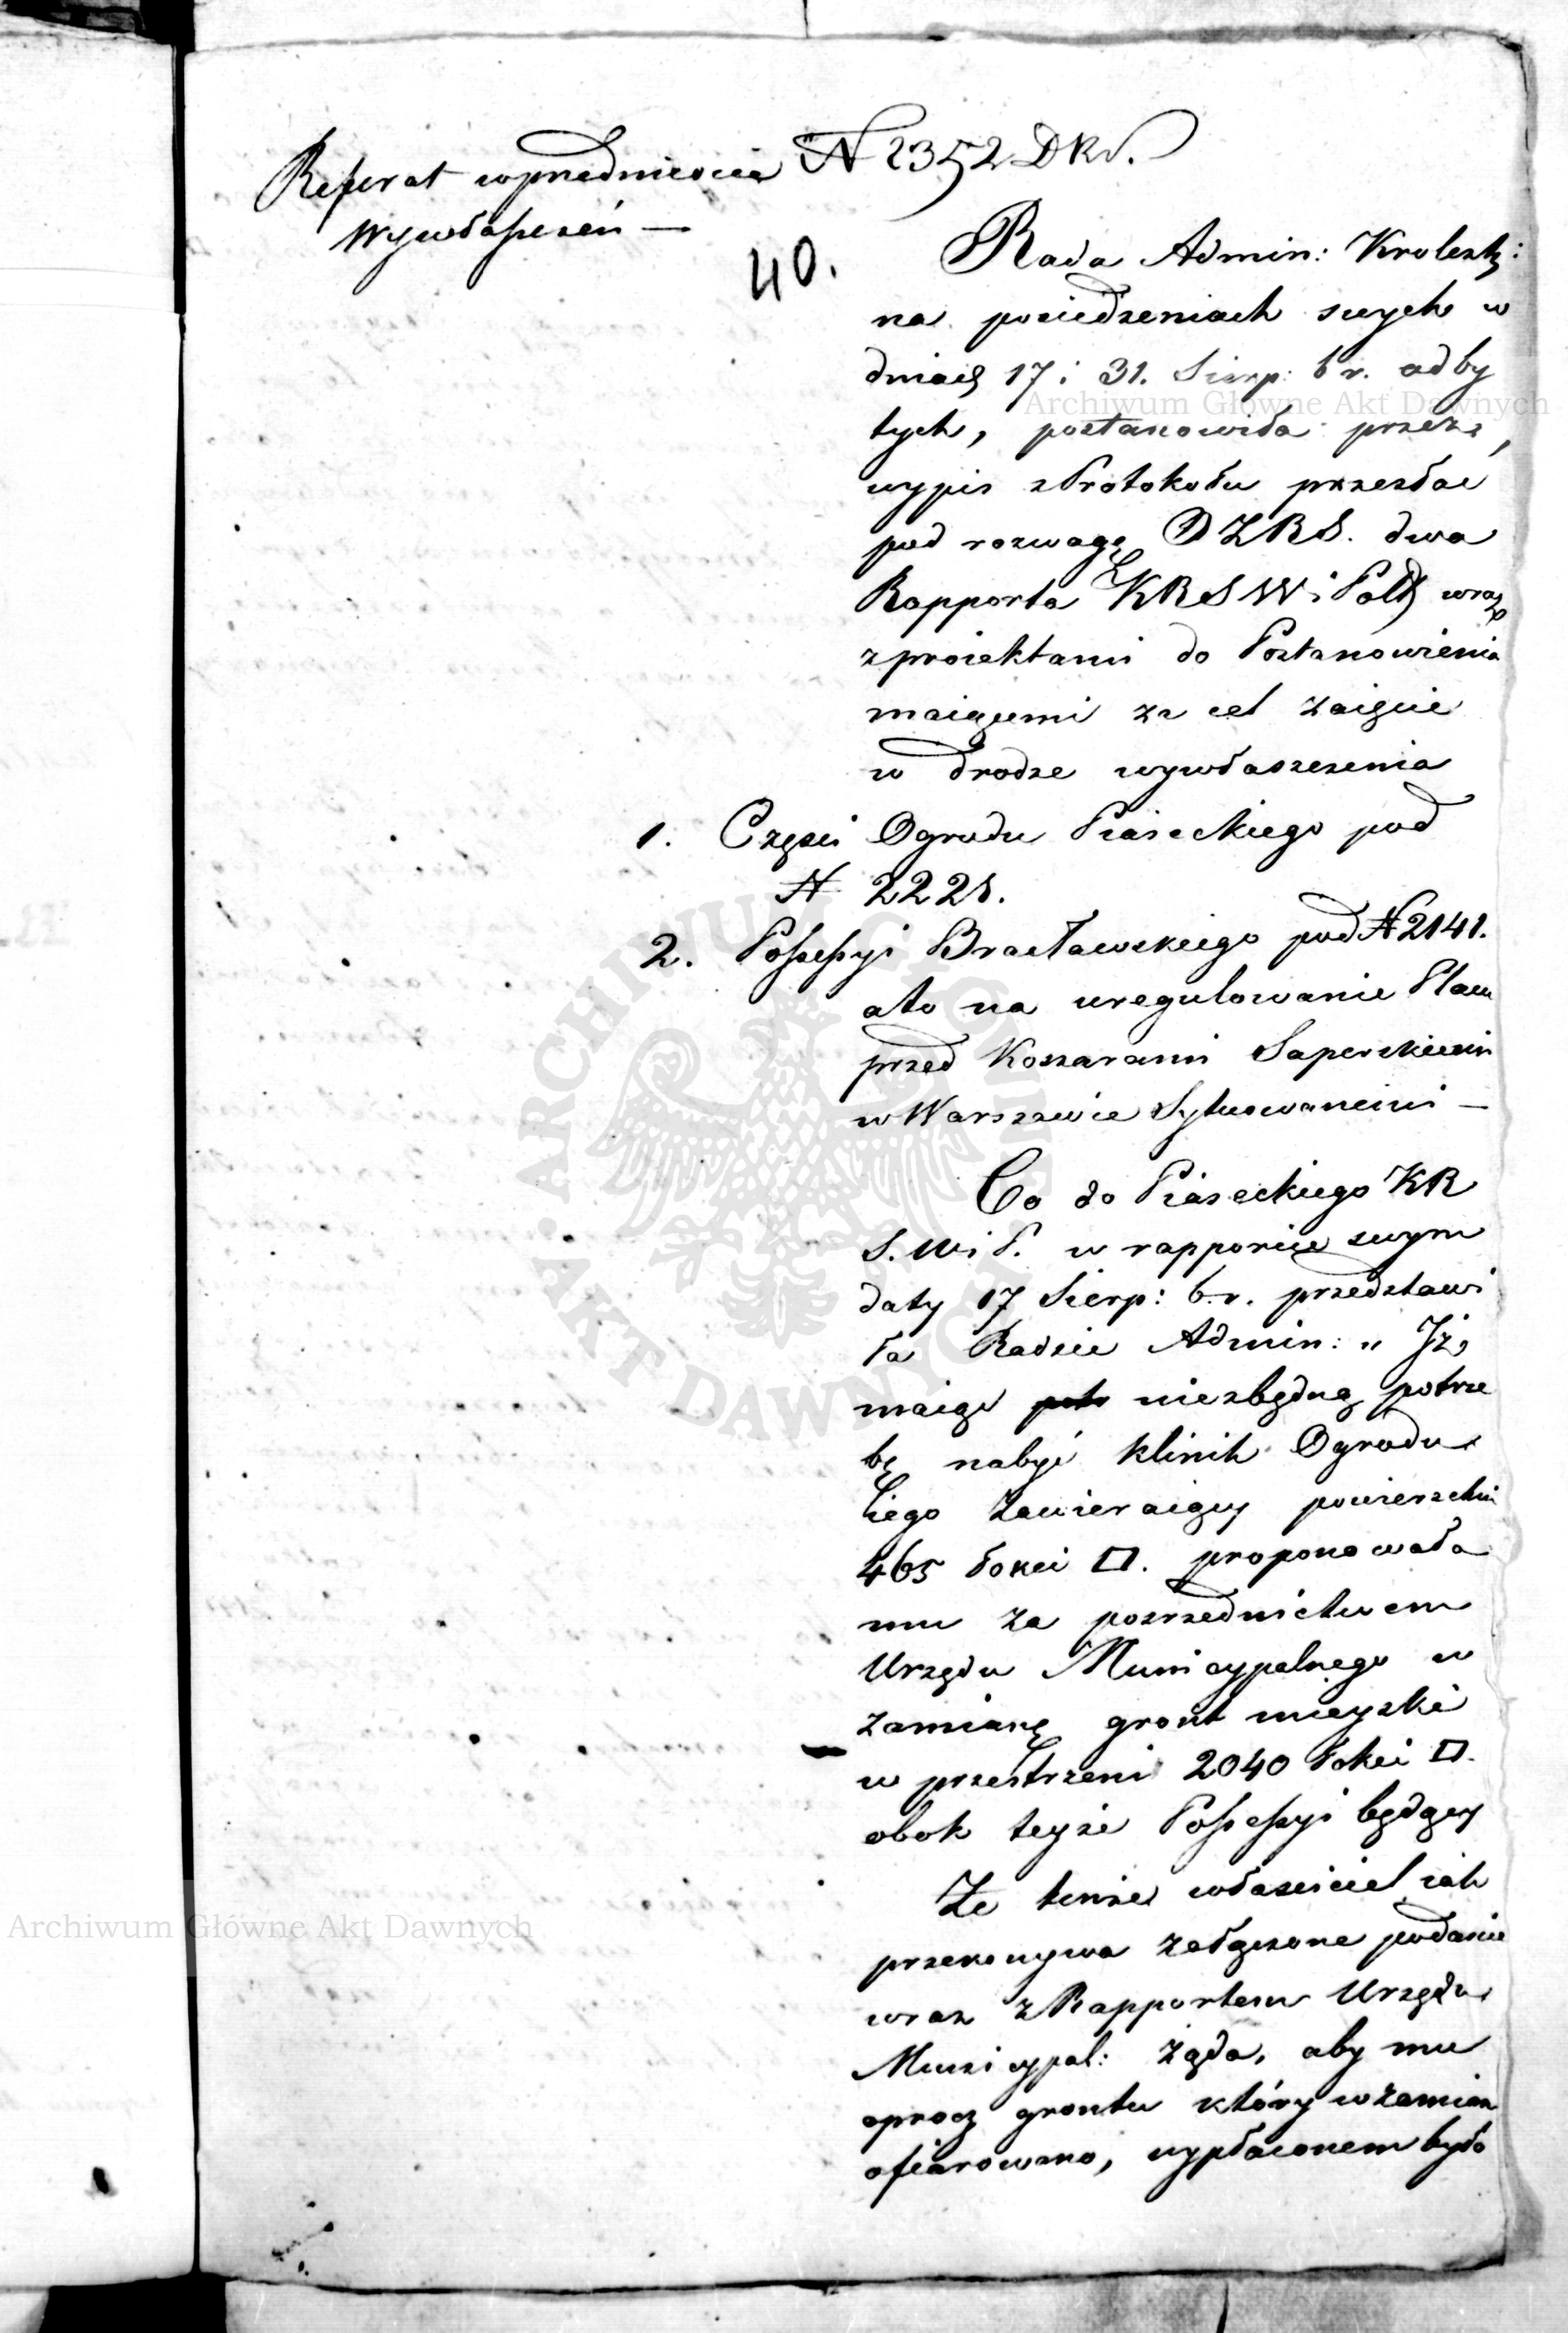 Referat w przedmiocie
Wywłaszczeń —
N 2352 DKr.
40.
Rada Admin: Krolestw:
na posiedzeniach swych w
dniach 17 i 31. Sierp: b r. odby
tych, postanowiła przez
wypis z Protokołu przesłać
pod rozwagę D Z R S. dwa
Rapporta KRSW i Pol wraz
z proiektami do Postanowienia
maiącemi za cel zaięcie
w drodze wywłaszczenia
1. Części Ogrodu Piaseckiego pod
N 2228.
2. Possessyi Bracławskiego pod N 2141.
a to na uregulowanie Placu
przed Koszarami Saperskiemi
w Warszawie Sytuowanemi —
Co do Piaseckiego KR
S. W i P. w rapporcie swym
daty 17 Sierp: b. r. przedstawi
ła Radzie Admin: „ Iż,
maiąc niezbędną potrze
bę nabyć klinik Ogrodu
iego zawieraiący powierzchni
465 łokci □. proponowała
mu za pośrzednictwem
Urzędu Municypalnego w
zamianę gront mieyski
w przestrzeni 2040 łokci □.
obok teyże Possessyi będący
Że tenże właściciel iak
przekonywa załączone podanie
wraz z Rapportem Urzędu
Municypal: żąda, aby mu
oprócz grontu który w zamian
ofiarowano, wypłaconem było
Archiwum Główne Akt Dawnych
Archiwum Główne Akt Dawnych
ARCHIWUM GŁÓWNE · AKT DAWNYCH ·